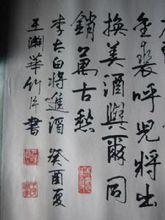 金裘呼兒將出
換美酒與爾同
銷萬古愁
李太白將進酒 癸酉夏
華竹片書